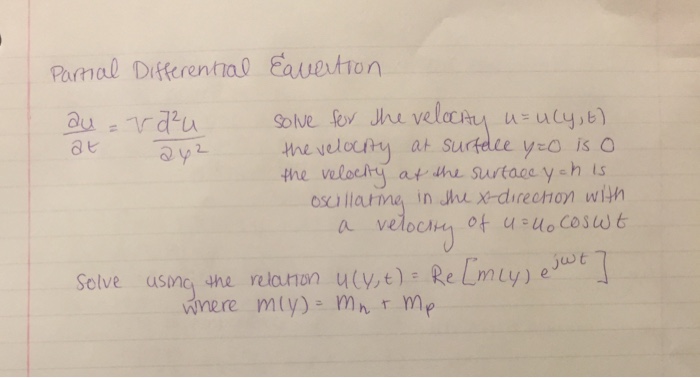 Partial Differential Equation
∂u/∂t = ν ∂²u/∂y²
solve for the velocity u = u(y,t)
the velocity at surface y=0 is 0
the velocity at the surface y=h is
oscillating in the x-direction with
a velocity of u = u₀ cos ωt
Solve using the relation u(y,t) = Re[m(y) e^{jωt}]
where m(y) = m_h + m_p